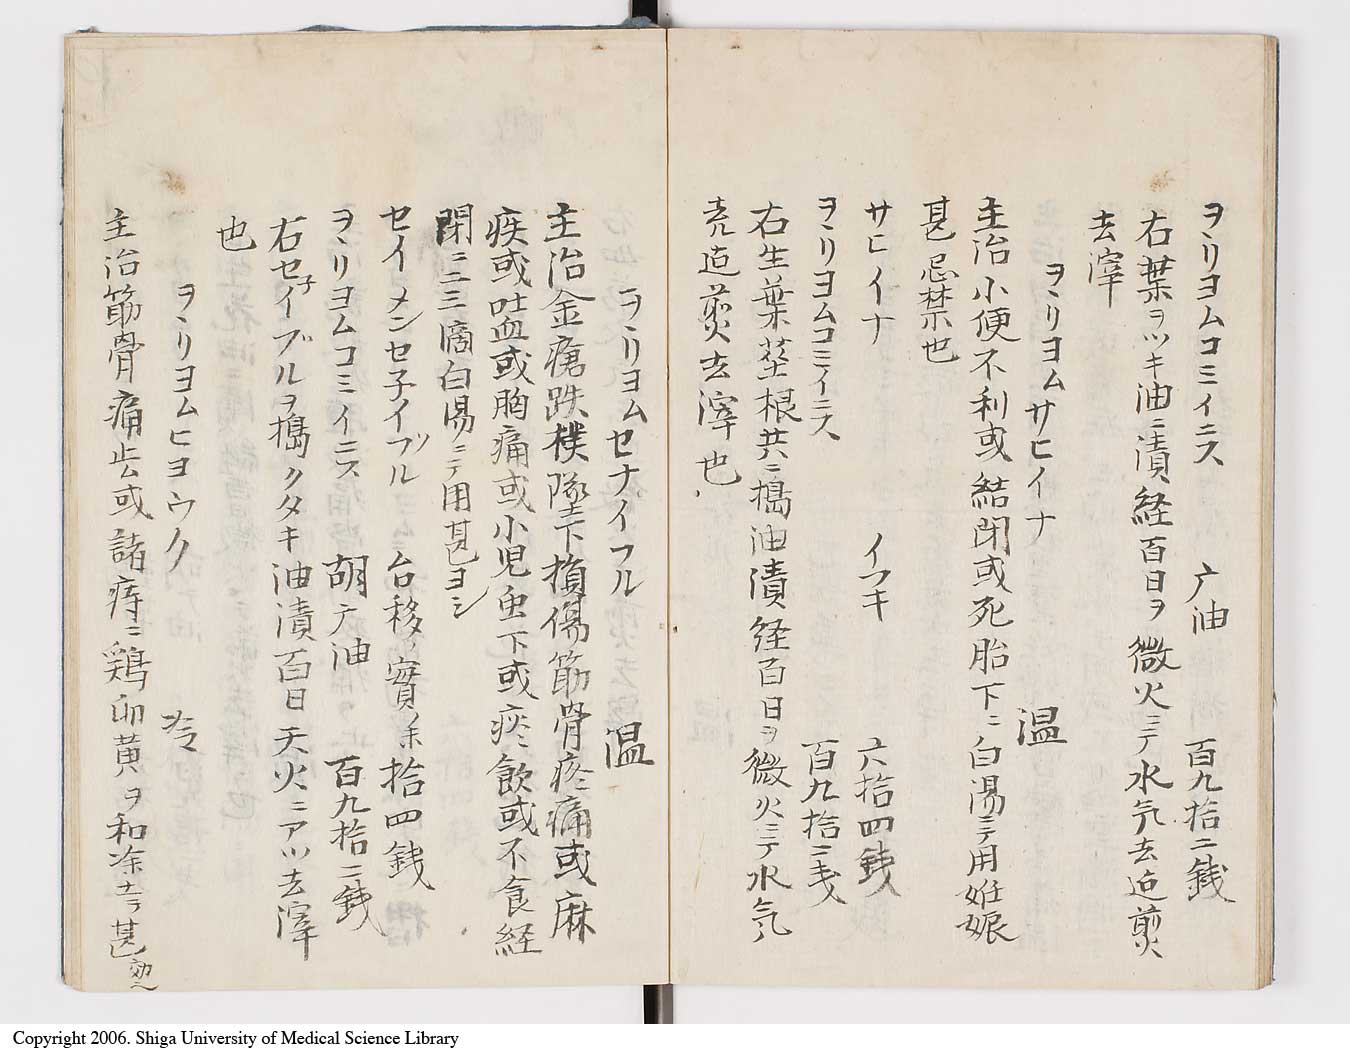 ヲヽリヨムコミイニス 广油 百九拾二銭
右葉ヲツキ油ニ漬経百日ヲ微火ニテ水気去迠煎
去滓
ヲヽリヨムサヒイナ 温
主治小便不利或結閉或死胎下ニ白湯ニテ用姙娠
甚忌禁也
サヒイナ イフキ 六拾四銭
ヲヽリヨムコミイニス 百九拾二戋
右生葉茎根共ニ搗油漬経百日ヲ微火ニテ水気
尭迠煎去滓也
ヲヽリヨムセナイフル 温
主治金瘡跌撲墜下損傷筋骨疼痛或麻
疾或吐血或胸痛或小児虫下或痰飲或不食経
閉ニ二三滴白湯ニテ用甚ヨシ
セイメンセ子イブル 台移ノ實 拾四銭
ヲヽリヨムコミイニス 胡广油 百九拾二銭
右セ子イブルヲ搗クタキ油漬百日天火ニアツ去滓
也
ヲヽリヨムヒヨウク 冷
主治筋骨痛ニ或諸痔ニ鶏卵黄ヲ和塗テ甚効
Copyright 2006. Shiga University of Medical Science Library